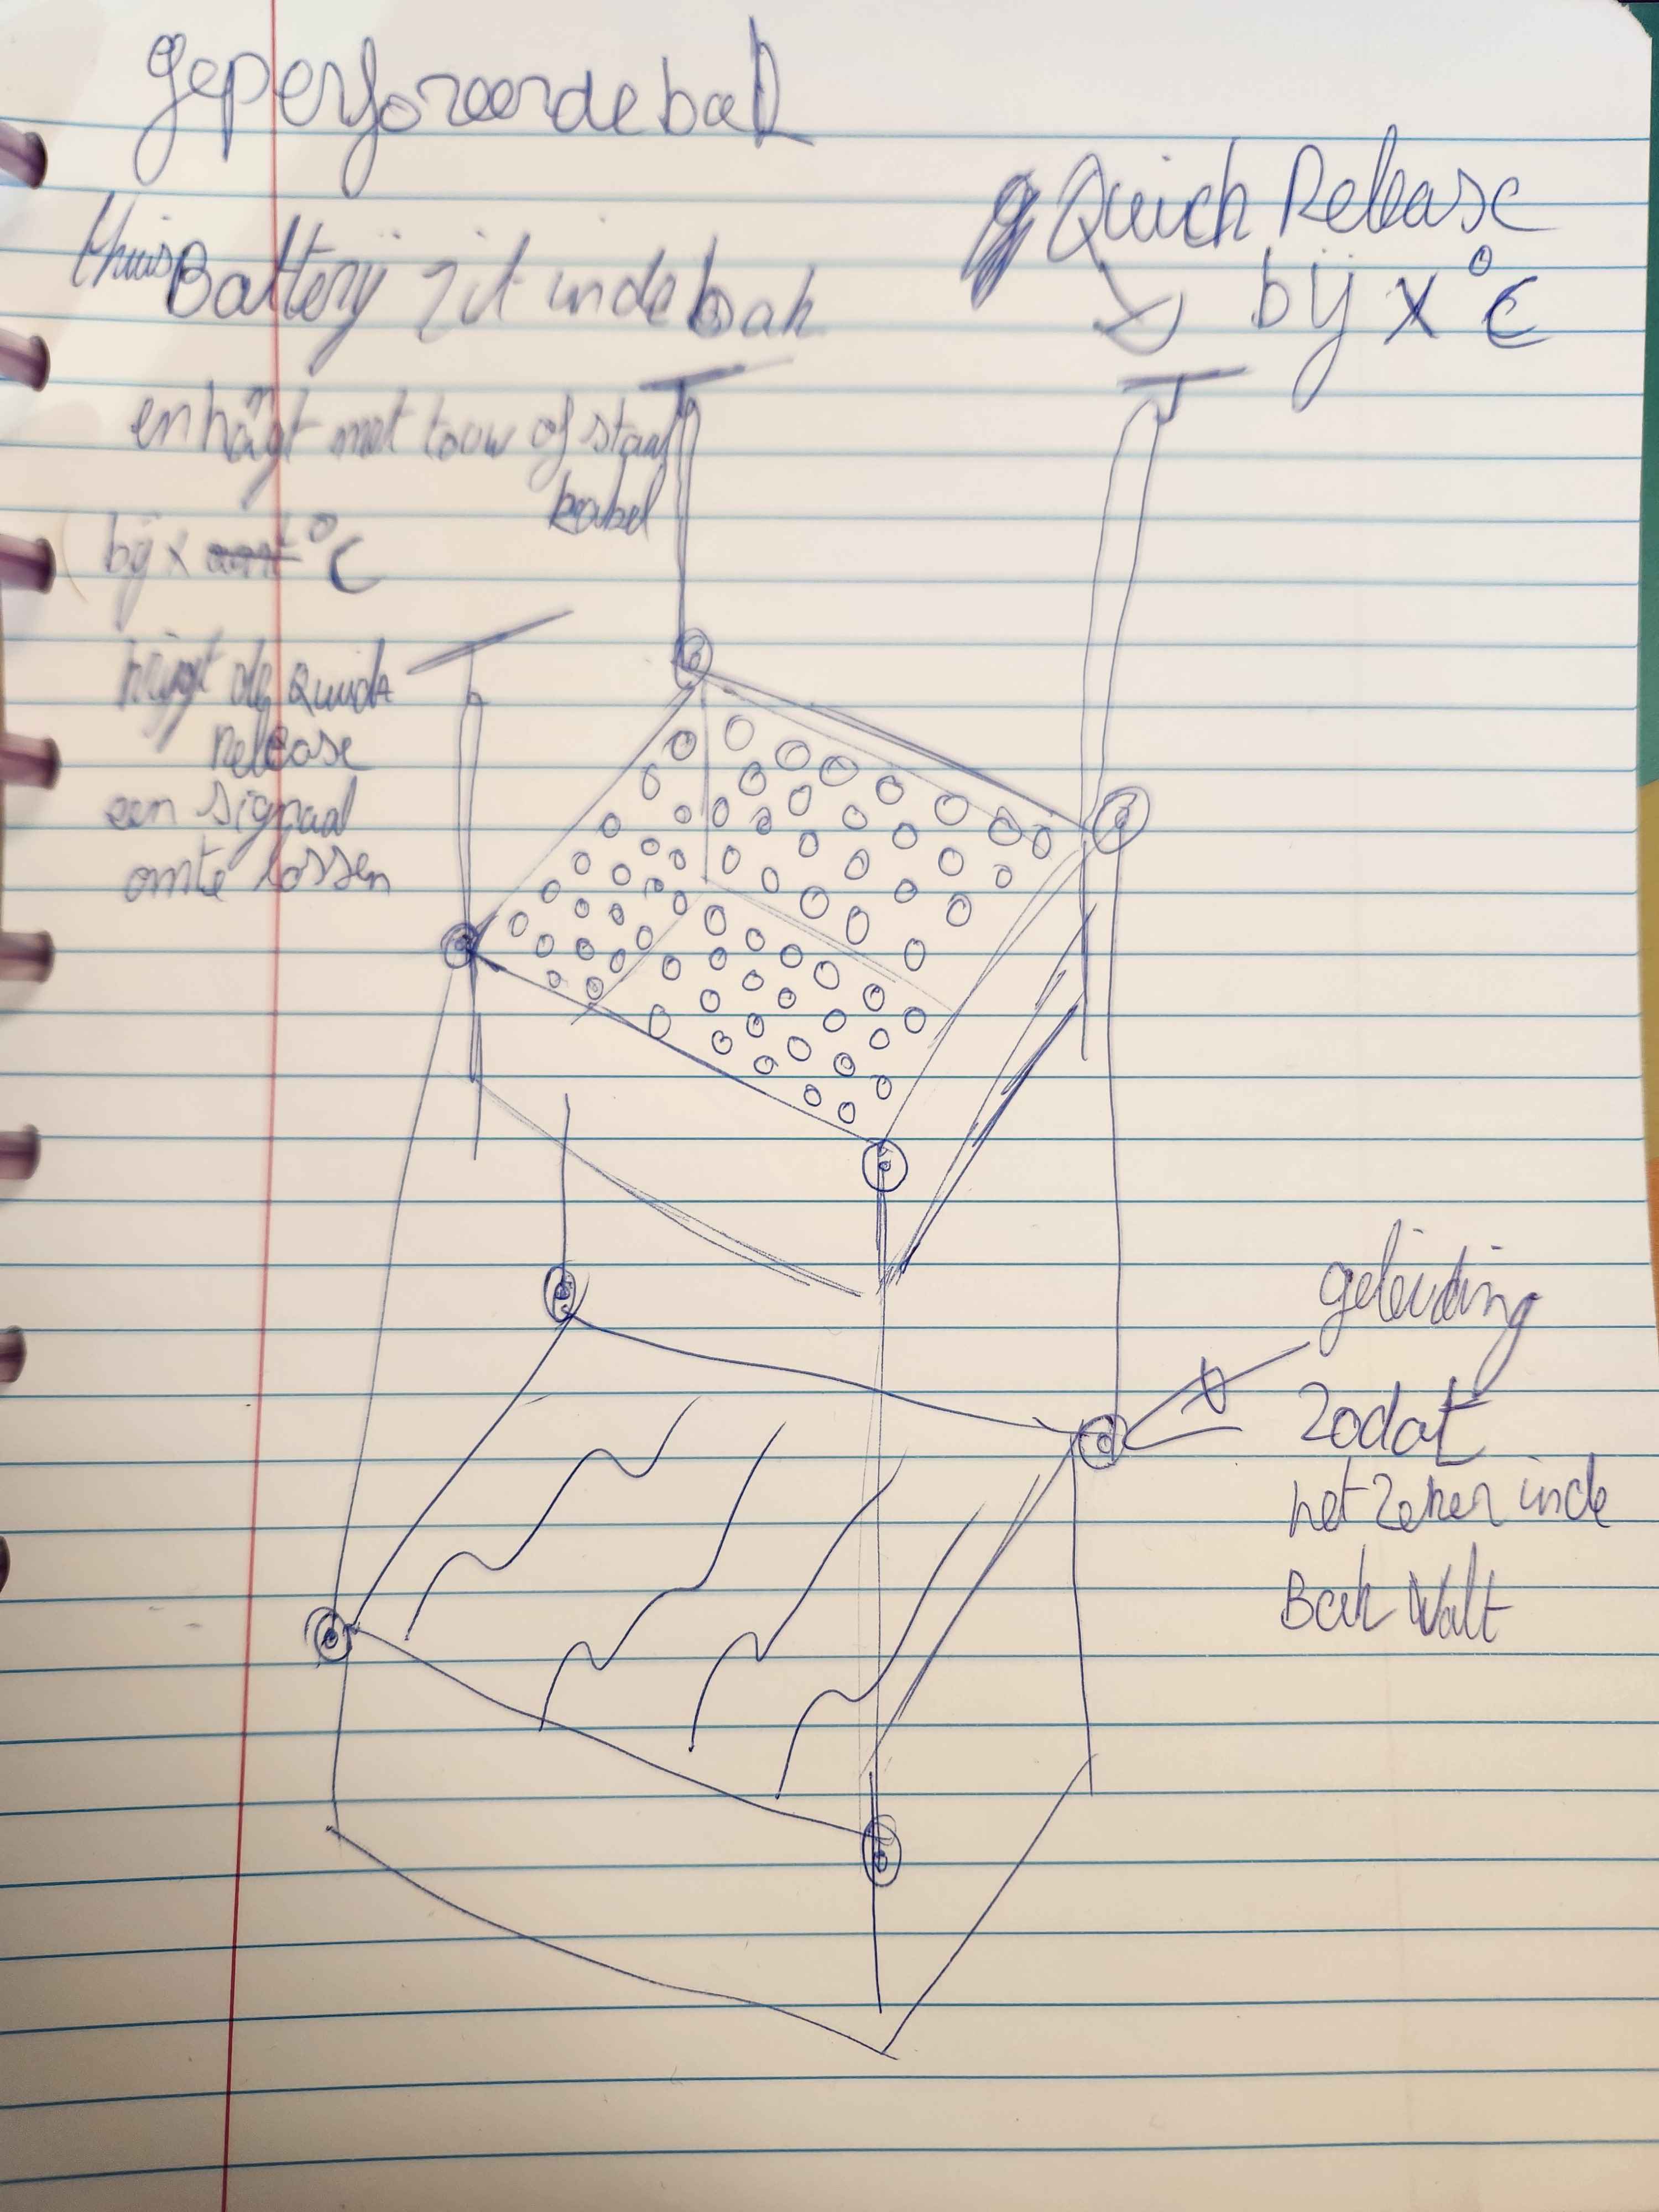 geperforeerde bak
thuis Batterij zit in de bak
en hangt met touw of staal
kabel
bij x °C
krijgt de Quick
Release
een signaal
om te lossen
Quick Release
bij x °C
geleiding
zodat
het zeker in de
Bak valt